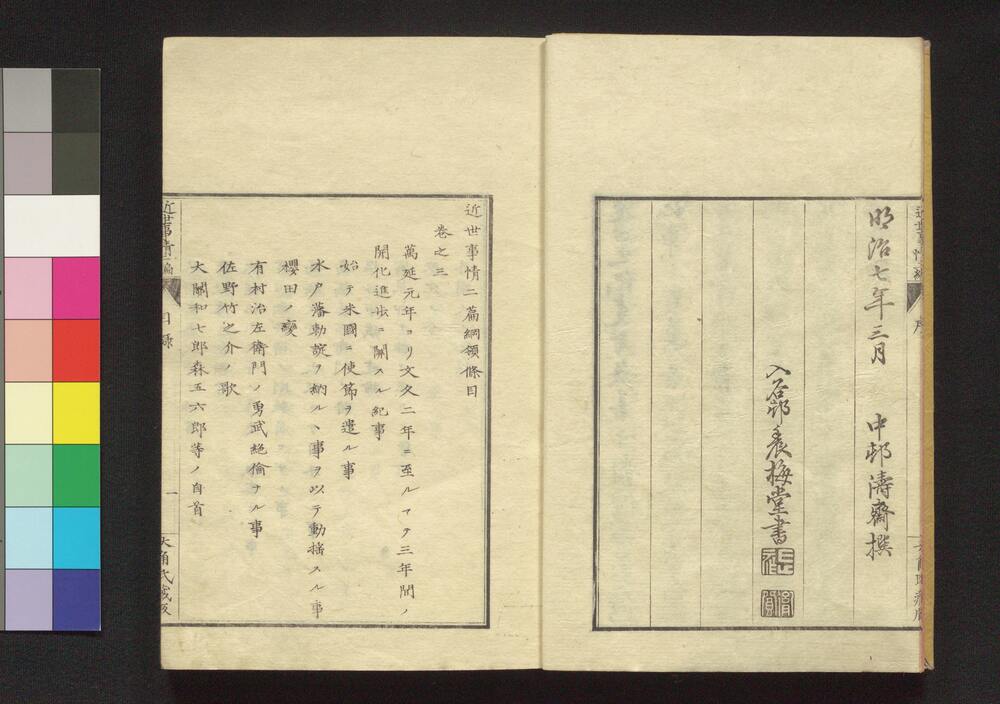 明治七年三月
中邨濤齋撰
養梅堂書
序
近世事情二篇綱領條目
巻之三
萬延元年ヨリ文久二年ニ至ルマテ三年間ノ
開化進歩ニ關スル紀事
始テ米國ニ使節ヲ遣ル事
水戸藩勅諚ヲ納ルヽ事ヲ以テ動揺スル事
櫻田ノ變
有村治左衛門ノ勇武絶倫ナル事
佐野竹之介ノ歌
大關和七郎森五六郎等ノ自首
目録
一